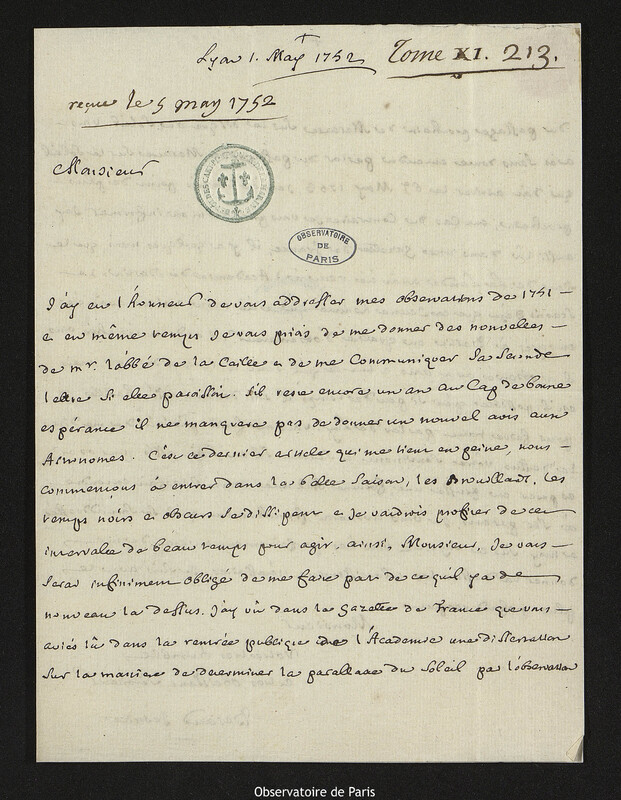 Lyon 1. May 1752 Tome XI. 213.
reçue le 5 may 1752
Monsieur
OBSERVATOIRE
DE
PARIS
J'ay eu l'honneur de vous addresser mes observations de 1751 —
e en même temps je vous priais de me donner des nouvelles —
de mr. labbé de la Caille e de me Communiquer sa seconde
lettre si elle paroissoit. s'il reste encore un an au Cap de bonne
espérance il ne manquera pas de donner un nouvel avis aux
Astronomes. C'est ce dernier article qui me tient en peine, nous —
commencons à entrer dans la belle saison, les brouillards, les
temps noirs e obscurs se dissipent e je voudrois profiter de cet
intervalle de beau temps pour agir. ainsi, Monsieur, je vous —
serai infiniment obligé de me faire part de ce qu'il y a de —
nouveau la dessus. J'ay vû dans la gazette de France que vous —
aviés lû dans la rentrée publique de l'Académie une dissertation
sur la maniere de determiner la parallaxe du Soleil pa l'observation
Observatoire de Paris